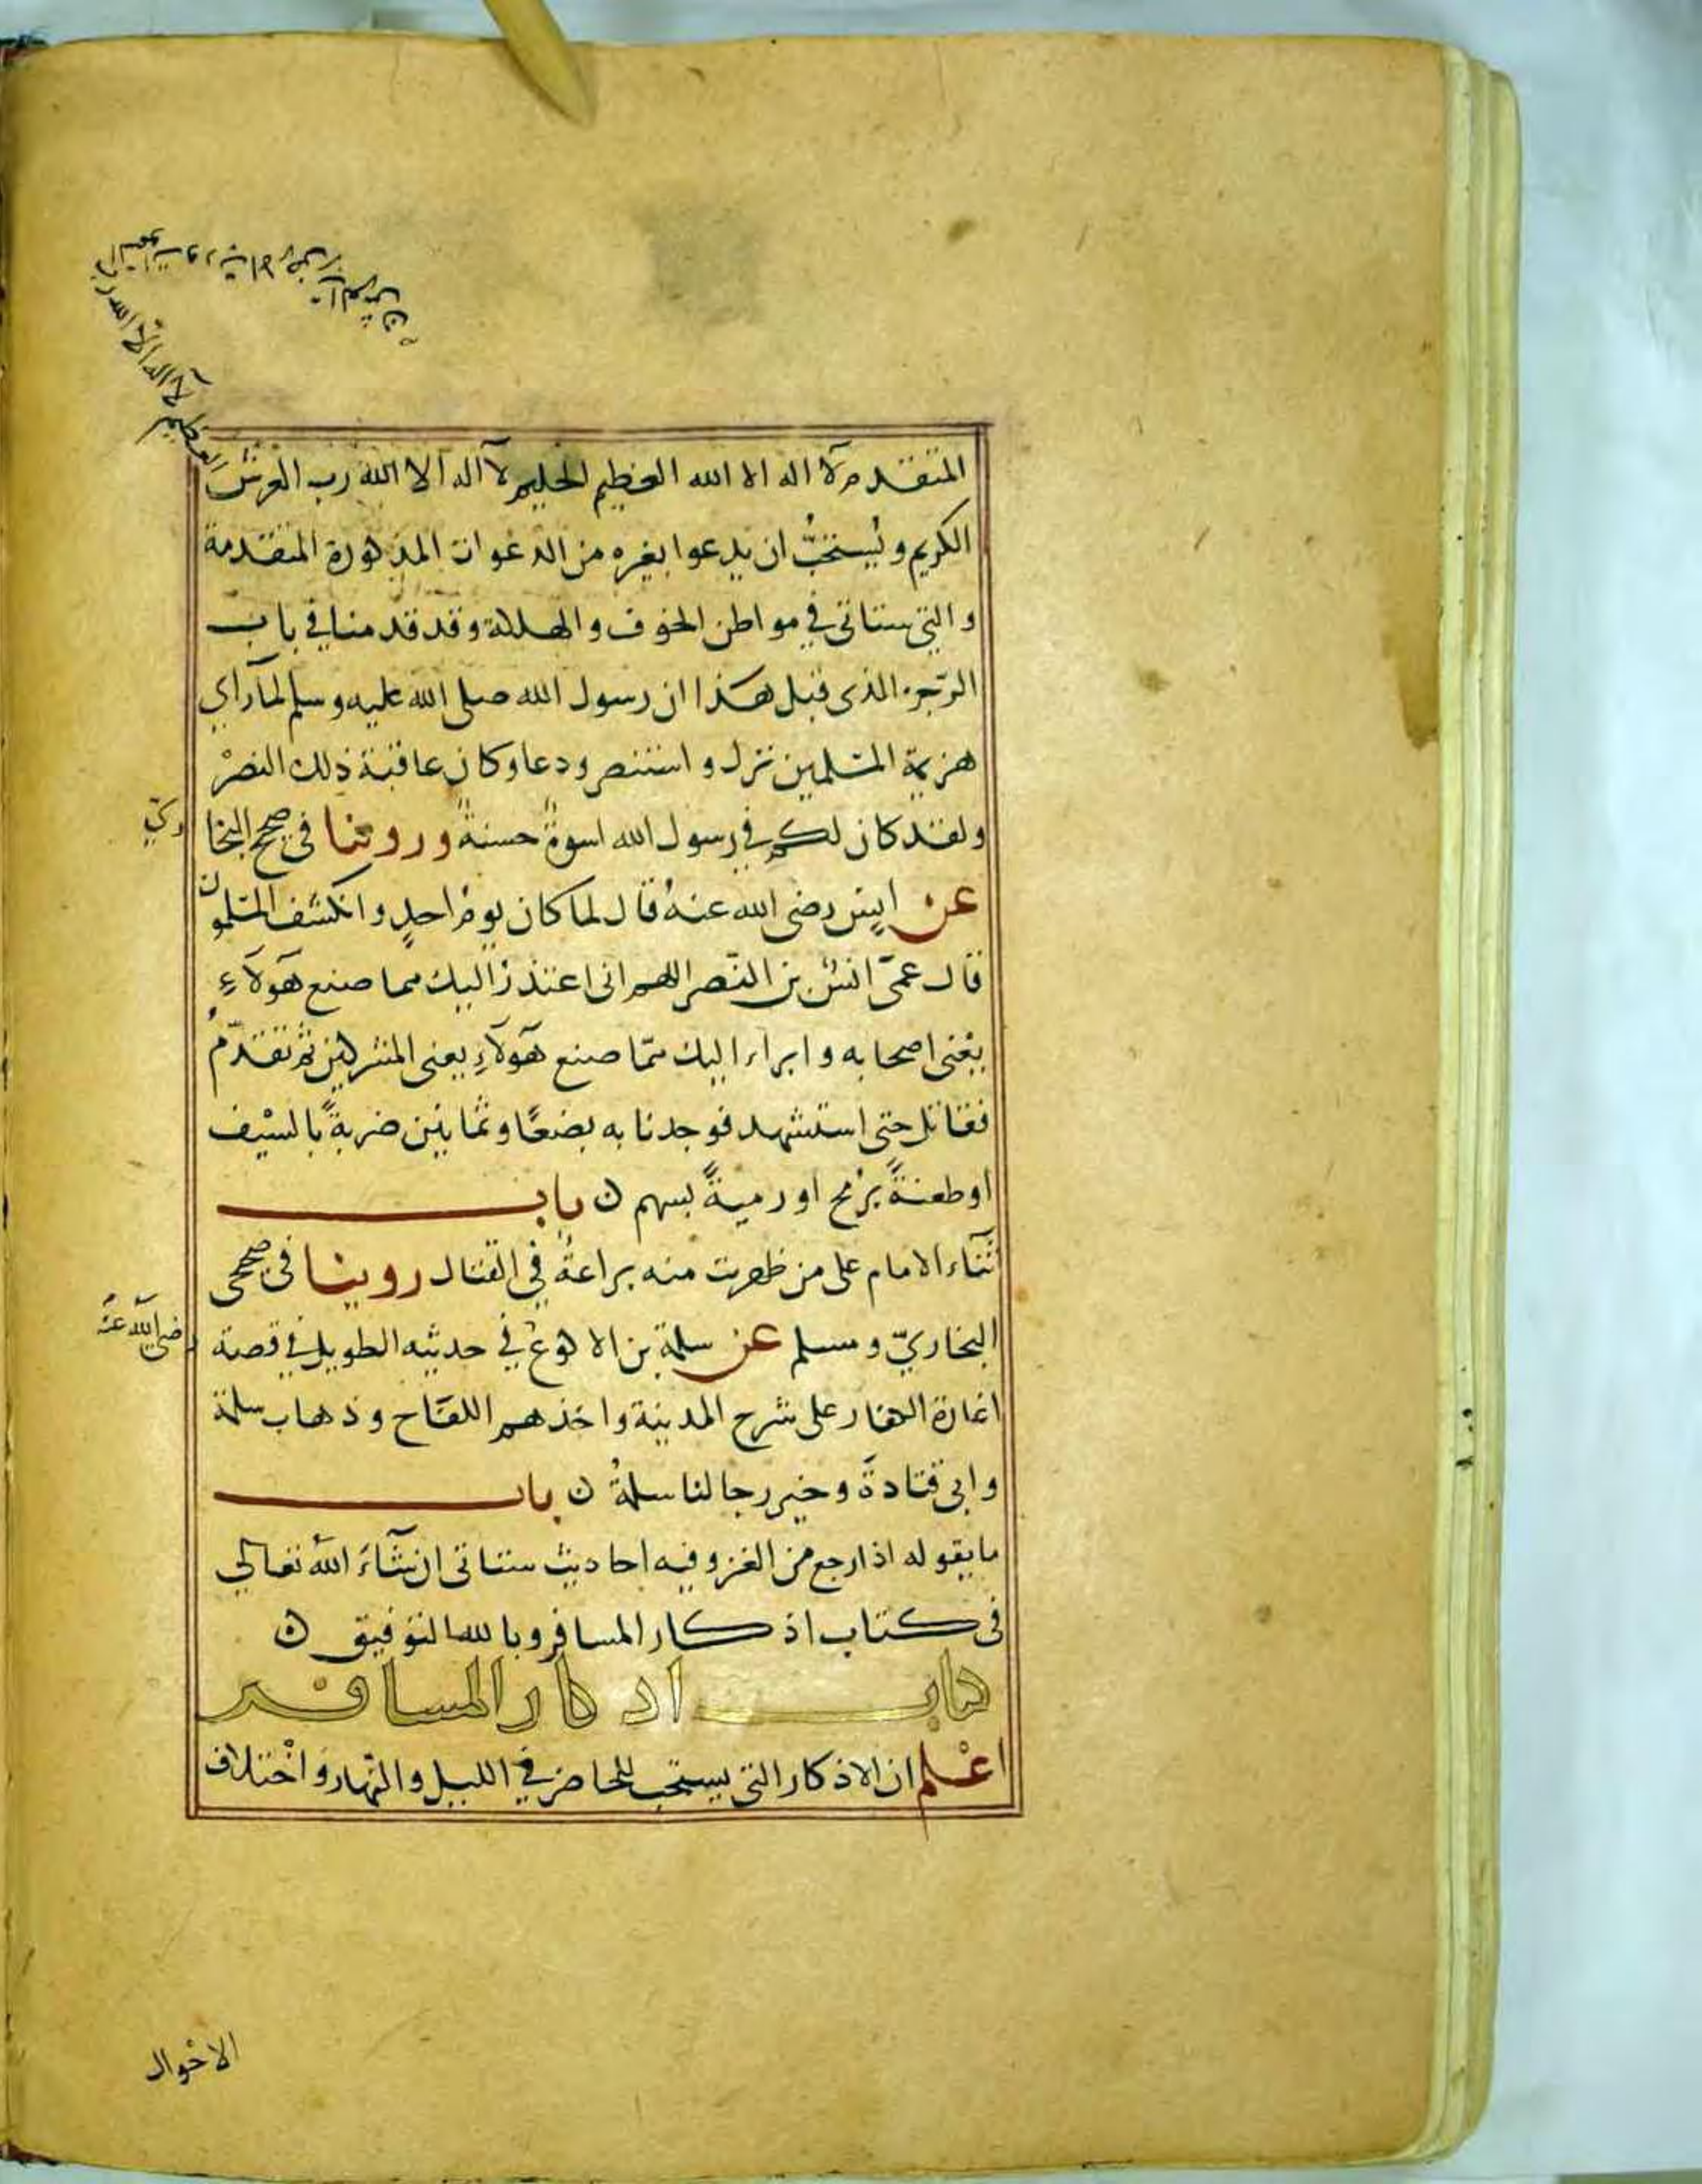 المتقدم لا اله الا الله العظيم الحليم لا اله الا الله رب العرش
العظيم لا اله الا الله رب
الكريم ويُستحبُّ ان يدعوا بغيره من الدعوات المذكورة المتقدمة
والتي ستاتى في مواطن الخوف والهلكة وقد قدمنا في باب
الرّجز الذى قبل هذا ان رسول الله صلى الله عليه وسلم لما رآي
هزيمة المسلمين نزل واستنصر ودعا وكان عاقبة ذلك النصرْ
ولقد كان لكم في رسول الله اسوةٌ حسنةٌ وروينا في صحيح البخا
ريّ
عن انسٍ رضي الله عنهُ قال لما كان يومُ احدٍ وانكشف المسلمون
قال عمّى انسُ بن النّضر اللهم انى اعتذرُ اليك مما صنع هَؤلآءِ
يعْنى اصحابه وابراء اليك ممّا صنع هَؤلآءِ يعنى المشركين ثم تقدّمُ
فقاتل حتى استشهد فوجدنا به بضعًا وثمانين ضربةً بالسيْف
او طعنةً برُمح او رميةً بسهم ن باب
ثَنَآء الامام على من ظهرت منه براعةٌ في القتال روينا في صحيحى
البخاريّ ومسلم عن سلمة بن الاكوعْ في حديثه الطويل في قصة
رضي الله عنهُ
اغارة الكفار على سَرح المدينة واخذهم اللقاح وذهاب سلمة
وابى قتادةَ وخير رجالنا سلمةُ ن باب
ما يقوله اذا رجع من الغزو فيه احاديث ستاتى ان شآءَ اللهُ تعالي
فى كتاب اذكار المسافر وبالله التوفيق ن
كتاب اذكار المسافر
اعْلم ان الاذكار التى يستحب للحاضر في الليل والنّهار واخْتلاف
الاحْوال